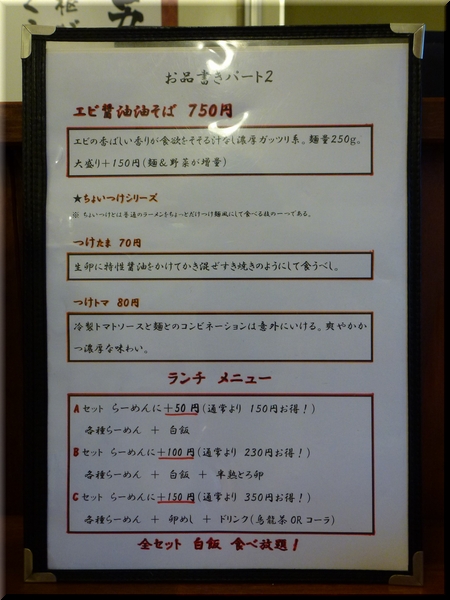 お品書きパート2
エビ醤油油そば 750円
エビの香ばしい香りが食欲をそそる汁なし濃厚ガッツリ系。麺量250g。
大盛り+150円(麺&野菜が増量)
★ちょいつけシリーズ
※ ちょいつけとは普通のラーメンをちょっとだけつけ麺風にして食べる技の一つである。
つけたま 70円
生卵に特性醤油をかけてかき混ぜすき焼きのようにして食うべし。
つけトマ 80円
冷製トマトソースと麺とのコンビネーションは意外にいける。爽やかか
つ濃厚な味わい。
ランチ メニュー
Aセット らーめんに+50円(通常より 150円お得!)
各種らーめん + 白飯
Bセット らーめんに+100円(通常より 230円お得!)
各種らーめん + 白飯 + 半熟とろ卵
Cセット らーめんに+150円(通常より 350円お得!)
各種らーめん + 卵めし + ドリンク(烏龍茶ORコーラ)
全セット 白飯 食べ放題!